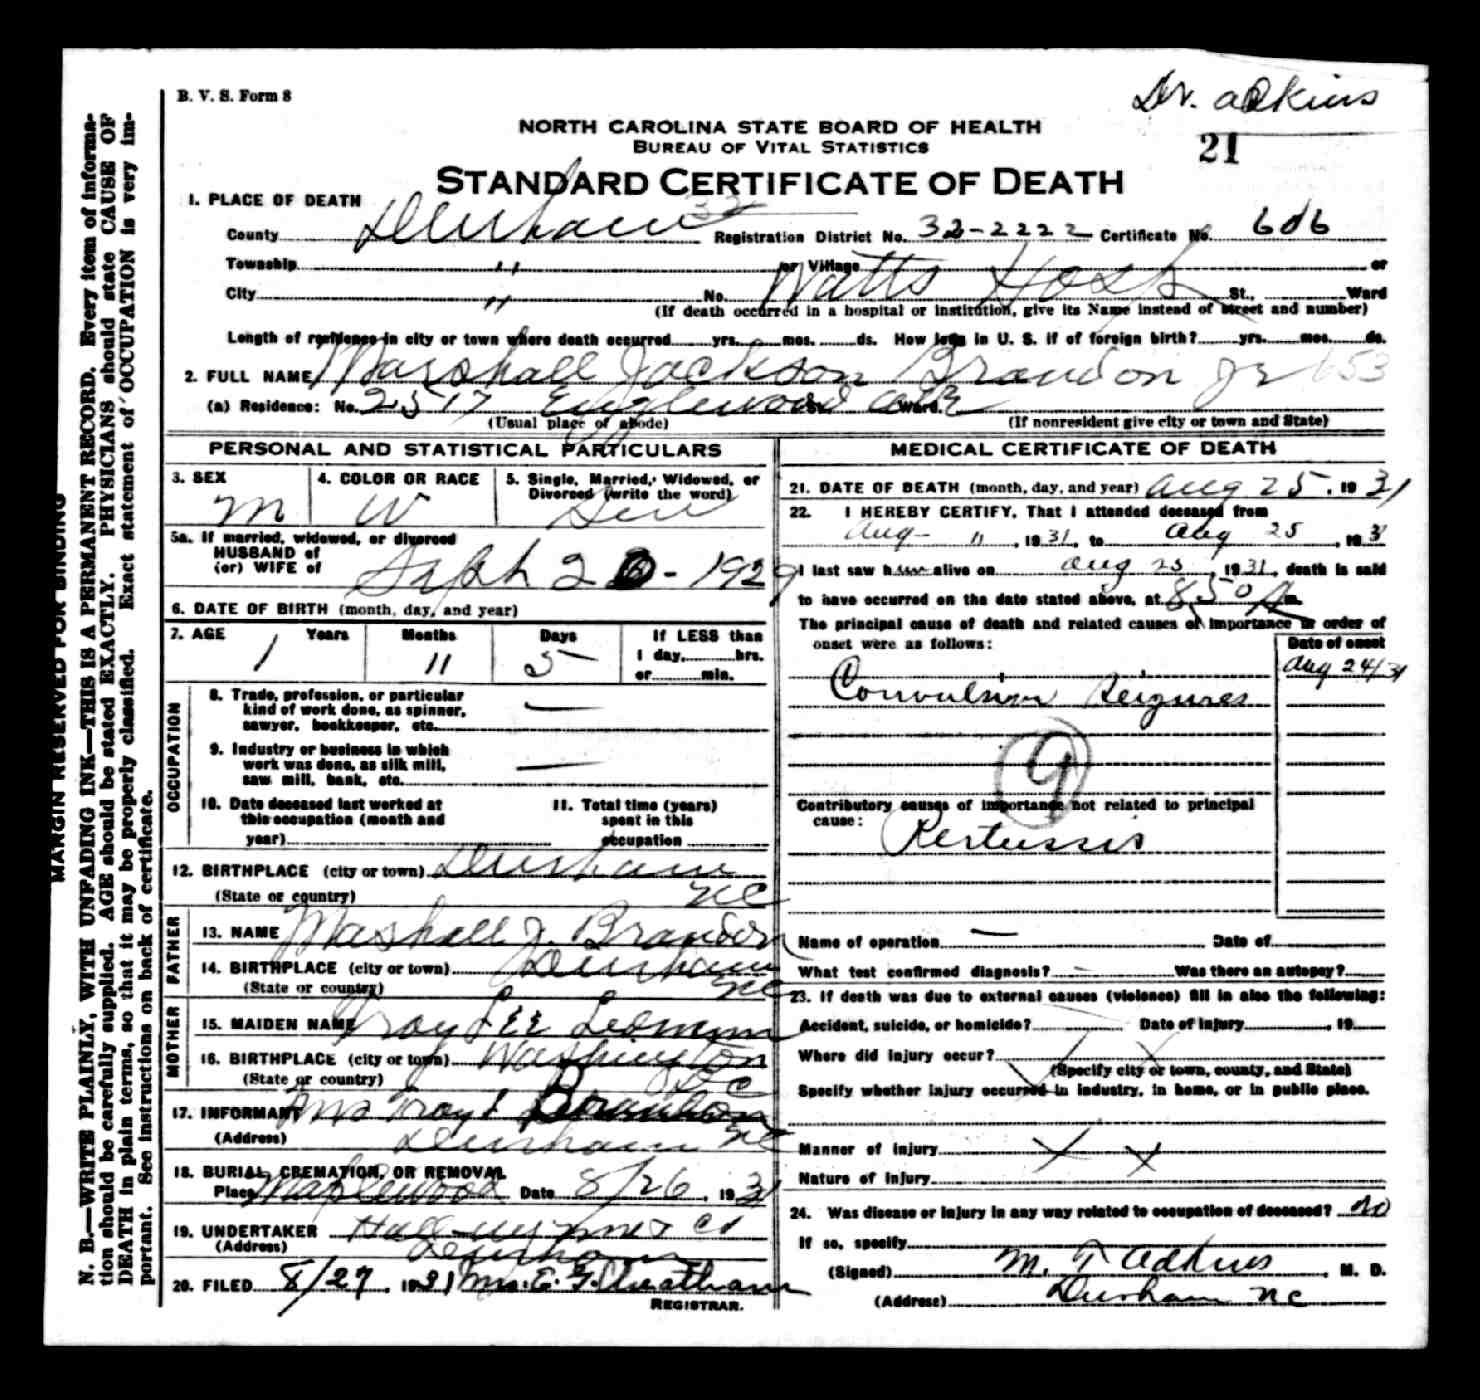 B. V. S. Form 8
Dr. Adkins
21
NORTH CAROLINA STATE BOARD OF HEALTH
BUREAU OF VITAL STATISTICS
STANDARD CERTIFICATE OF DEATH
1. PLACE OF DEATH
32
County Durham Registration District No. 32-2222 Certificate No. 606
Township " or Village or
City " No. Watts Hosp St., Ward
(If death occurred in a hospital or institution, give its Name instead of street and number)
Length of residence in city or town where death occurred yrs. mos. ds. How long in U. S. if of foreign birth? yrs. mos. ds.
2. FULL NAME Marshall Jackson Brandon Jr 653
(a) Residence: No. 2517 Englewood Ave St. Ward.
(Usual place of abode) (If nonresident give city or town and State)
PERSONAL AND STATISTICAL PARTICULARS
3. SEX 4. COLOR OR RACE 5. Single, Married, Widowed, or Divorced (write the word)
M W
5a. If married, widowed, or divorced
HUSBAND of
(or) WIFE of
Seph 20 - 1929
6. DATE OF BIRTH (month, day, and year)
7. AGE Years Months Days If LESS than
1 11 5 1 day, hrs.
or min.
OCCUPATION
8. Trade, profession, or particular
kind of work done, as spinner,
sawyer, bookkeeper, etc. —
9. Industry or business in which
work was done, as silk mill,
saw mill, bank, etc. —
10. Date deceased last worked at
this occupation (month and
year)
11. Total time (years)
spent in this
occupation
12. BIRTHPLACE (city or town) Durham
(State or country) NC
FATHER
13. NAME Marshall J. Brandon
14. BIRTHPLACE (city or town) Durham
(State or country) NC
MOTHER
15. MAIDEN NAME Troy Lee
16. BIRTHPLACE (city or town) Washington
(State or country) DC
17. INFORMANT Mrs Troy L Brandon
(Address) Durham NC
18. BURIAL, CREMATION, OR REMOVAL
Place Maplewood Date 8/26, 1931
19. UNDERTAKER Hall-Wynne & Co
(Address) Durham
20. FILED 8/27 1931 Mrs. E. G. Cheatham
REGISTRAR.
MEDICAL CERTIFICATE OF DEATH
21. DATE OF DEATH (month, day, and year) Aug 25, 1931
22. I HEREBY CERTIFY, That I attended deceased from
Aug 11, 1931, to Aug 25, 1931
I last saw him alive on Aug 25, 1931, death is said
to have occurred on the date stated above, at 8:50 A m.
The principal cause of death and related causes of importance in order of
onset were as follows:
Date of onset
Aug 24/31
Convulsion Seizures
9
Contributory causes of importance not related to principal
cause:
Pertussis
Name of operation — Date of
What test confirmed diagnosis? – Was there an autopsy?
23. If death was due to external causes (violence) fill in also the following:
Accident, suicide, or homicide? Date of injury , 19
Where did injury occur?
(Specify city or town, county, and State)
Specify whether injury occurred in industry, in home, or in public place.
Manner of injury
Nature of injury
24. Was disease or injury in any way related to occupation of deceased? No
If so, specify
(Signed) M. T. Adkins, M. D.
(Address) Durham NC
MARGIN RESERVED FOR BINDING
N. B.—WRITE PLAINLY, WITH UNFADING INK—THIS IS A PERMANENT RECORD. Every item of informa-
tion should be carefully supplied. AGE should be stated EXACTLY. PHYSICIANS should state CAUSE OF
DEATH in plain terms, so that it may be properly classified. Exact statement of OCCUPATION is very im-
portant. See instructions on back of certificate.